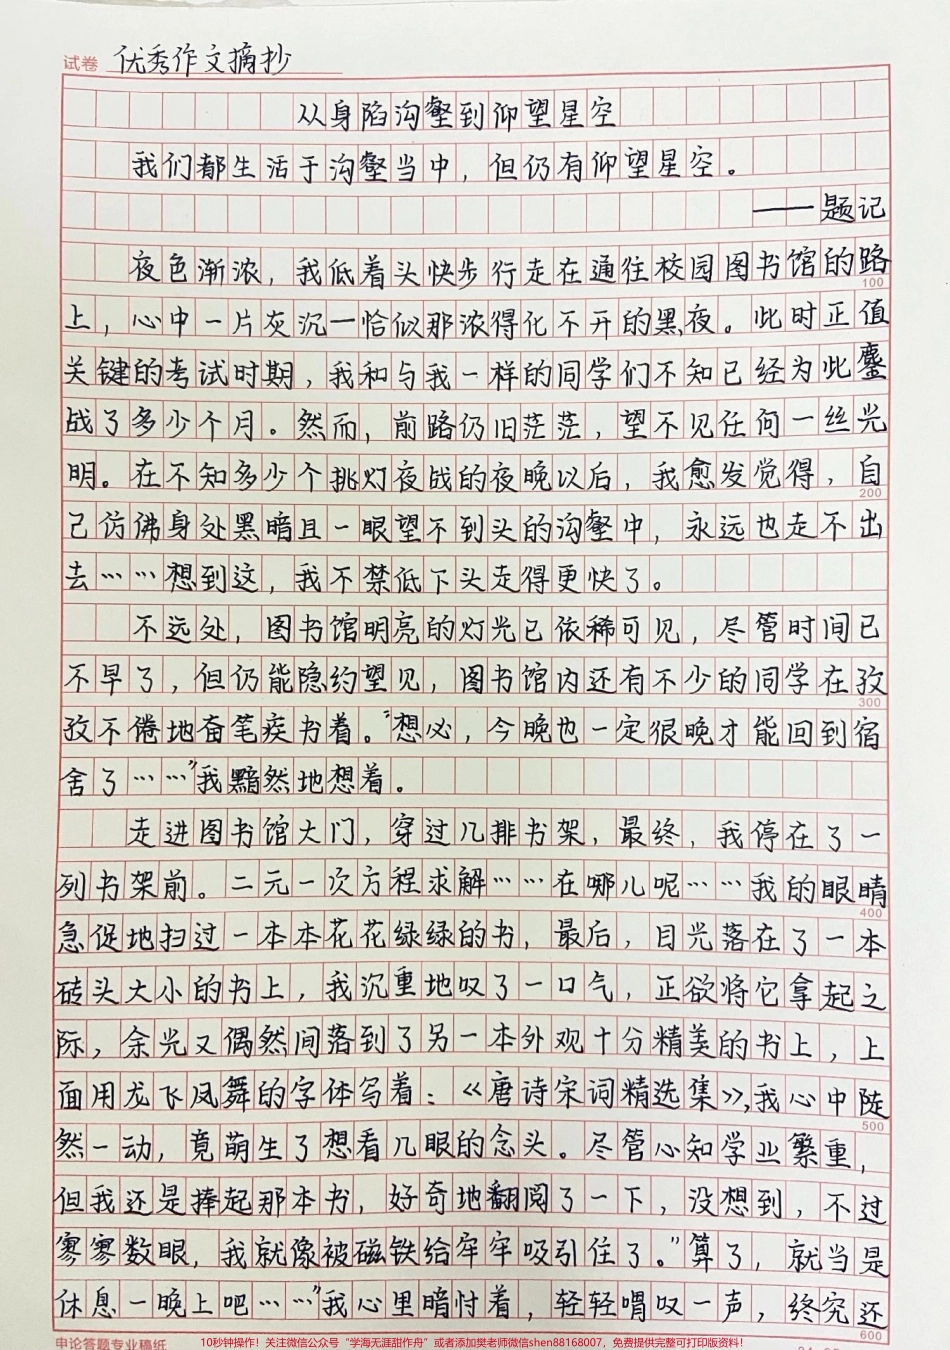 试卷 优秀作文摘抄
从身陷沟壑到仰望星空
我们都生活于沟壑当中，但仍有仰望星空。
——题记
夜色渐浓，我低着头快步行走在通往校园图书馆的路
100
上，心中一片灰沉一恰似那浓得化不开的黑夜。此时正值
关键的考试时期，我和与我一样的同学们不知已经为此鏖
战了多少个月。然而，前路仍旧茫茫，望不见任何一丝光
明。在不知多少个挑灯夜战的夜晚以后，我愈发觉得，自
200
己仿佛身处黑暗且一眼望不到头的沟壑中，永远也走不出
去……想到这，我不禁低下头走得更快了。
不远处，图书馆明亮的灯光已依稀可见，尽管时间已
不早了，但仍能隐约望见，图书馆内还有不少的同学在孜
300
孜不倦地奋笔疾书着。“想必，今晚也一定很晚才能回到宿
舍了……”我黯然地想着。
走进图书馆大门，穿过几排书架，最终，我停在了一
列书架前。二元一次方程求解……在哪儿呢……我的眼睛
400
急促地扫过一本本花花绿绿的书，最后，目光落在了一本
砖头大小的书上，我沉重地叹了一口气，正欲将它拿起之
际，余光又偶然间落到了另一本外观十分精美的书上，上
面用龙飞凤舞的字体写着：《唐诗宋词精选集》，我心中陡
500
然一动，竟萌生了想看几眼的念头。尽管心知学业繁重，
但我还是捧起那本书，好奇地翻阅了一下，没想到，不过
寥寥数眼，我就像被磁铁给牢牢吸引住了。“算了，就当是
休息一晚上吧……”我心里暗忖着，轻轻喟叹一声，终究还
600
申论答题专业稿纸
10秒钟操作！关注微信公众号“学海无涯甜作舟”或者添加樊老师微信shen88168007，免费提供完整可打印版资料！